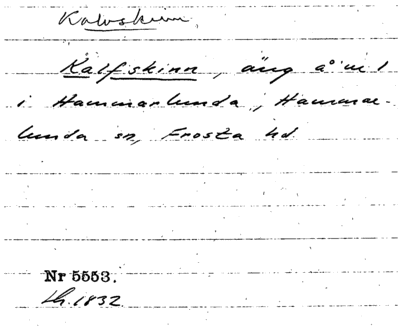 Kalvskinn
Kalfskinn, äng å nr 1
i Hammarlunda, Hammar-
lunda sn, Frosta hd
Nr 5553.
Lh. 1832